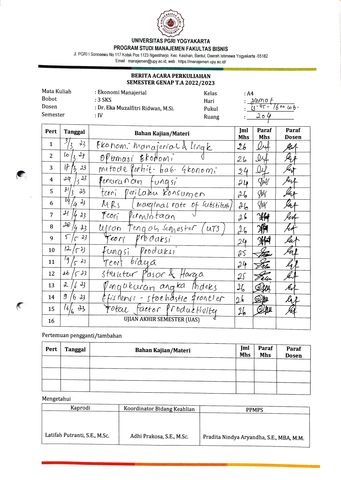 UNIVERSITAS PGRI YOGYAKARTA
PROGRAM STUDI MANAJEMEN FAKULTAS BISNIS
Jl. PGRI I Sonosewu No 117 Kotak Pos 1123 Ngestiharjo, Kec. Kasihan, Bantul, Daerah Istimewa Yogyakarta -55182
Email : manajemen@upy.ac.id, web : https://manajemen.upy.ac.id/
BERITA ACARA PERKULIAHAN
SEMESTER GENAP T.A 2022/2023
Mata Kuliah : Ekonomi Manajerial Kelas : A4
Bobot : 3 SKS Hari :
Dosen : Dr. Eka Muzalfitri Ridwan, M.Si. Pukul :
Semester : IV Ruang : 204
Pert Tanggal Bahan Kajian/Materi Jml Mhs Paraf Mhs Paraf Dosen
1 3/3 23 Ekonomi manajerial & lingk 26
2 10/3 23 Optimasi Ekonomi 26
3 17/3 23 metode 24
4 23 Penurunan Fungsi 24
5 31/3 23 teori perilaku konsumen 26
6 23 MRS (marginal rate of substitusi) 26
7 23 Teori 26
8 23 Ujian Tengah Semester (UTS) 26
9 5/5 23 Teori produksi 24
10 12/5 23 Fungsi Produksi 25
11 19/5 23 Teori biaya 24
12 26/5 23 Struktur Pasar & Harga 25
13 2/6 23 Pengukuran angka Indeks 26
14 9/6 23 Efisiensi - stochastic frontier 26
15 16/6 23 Total factor Productivity 26
16 UJIAN AKHIR SEMESTER (UAS)
Pertemuan pengganti/tambahan
Pert Tanggal Bahan Kajian/Materi Jml Mhs Paraf Mhs Paraf Dosen
Mengetahui
Kaprodi Koordinator Bidang Keahlian PPMPS
Latifah Putranti, S.E., M.Sc. Adhi Prakosa, S.E., M.Sc. Pradita Nindya Aryandha, S.E., MBA, M.M.